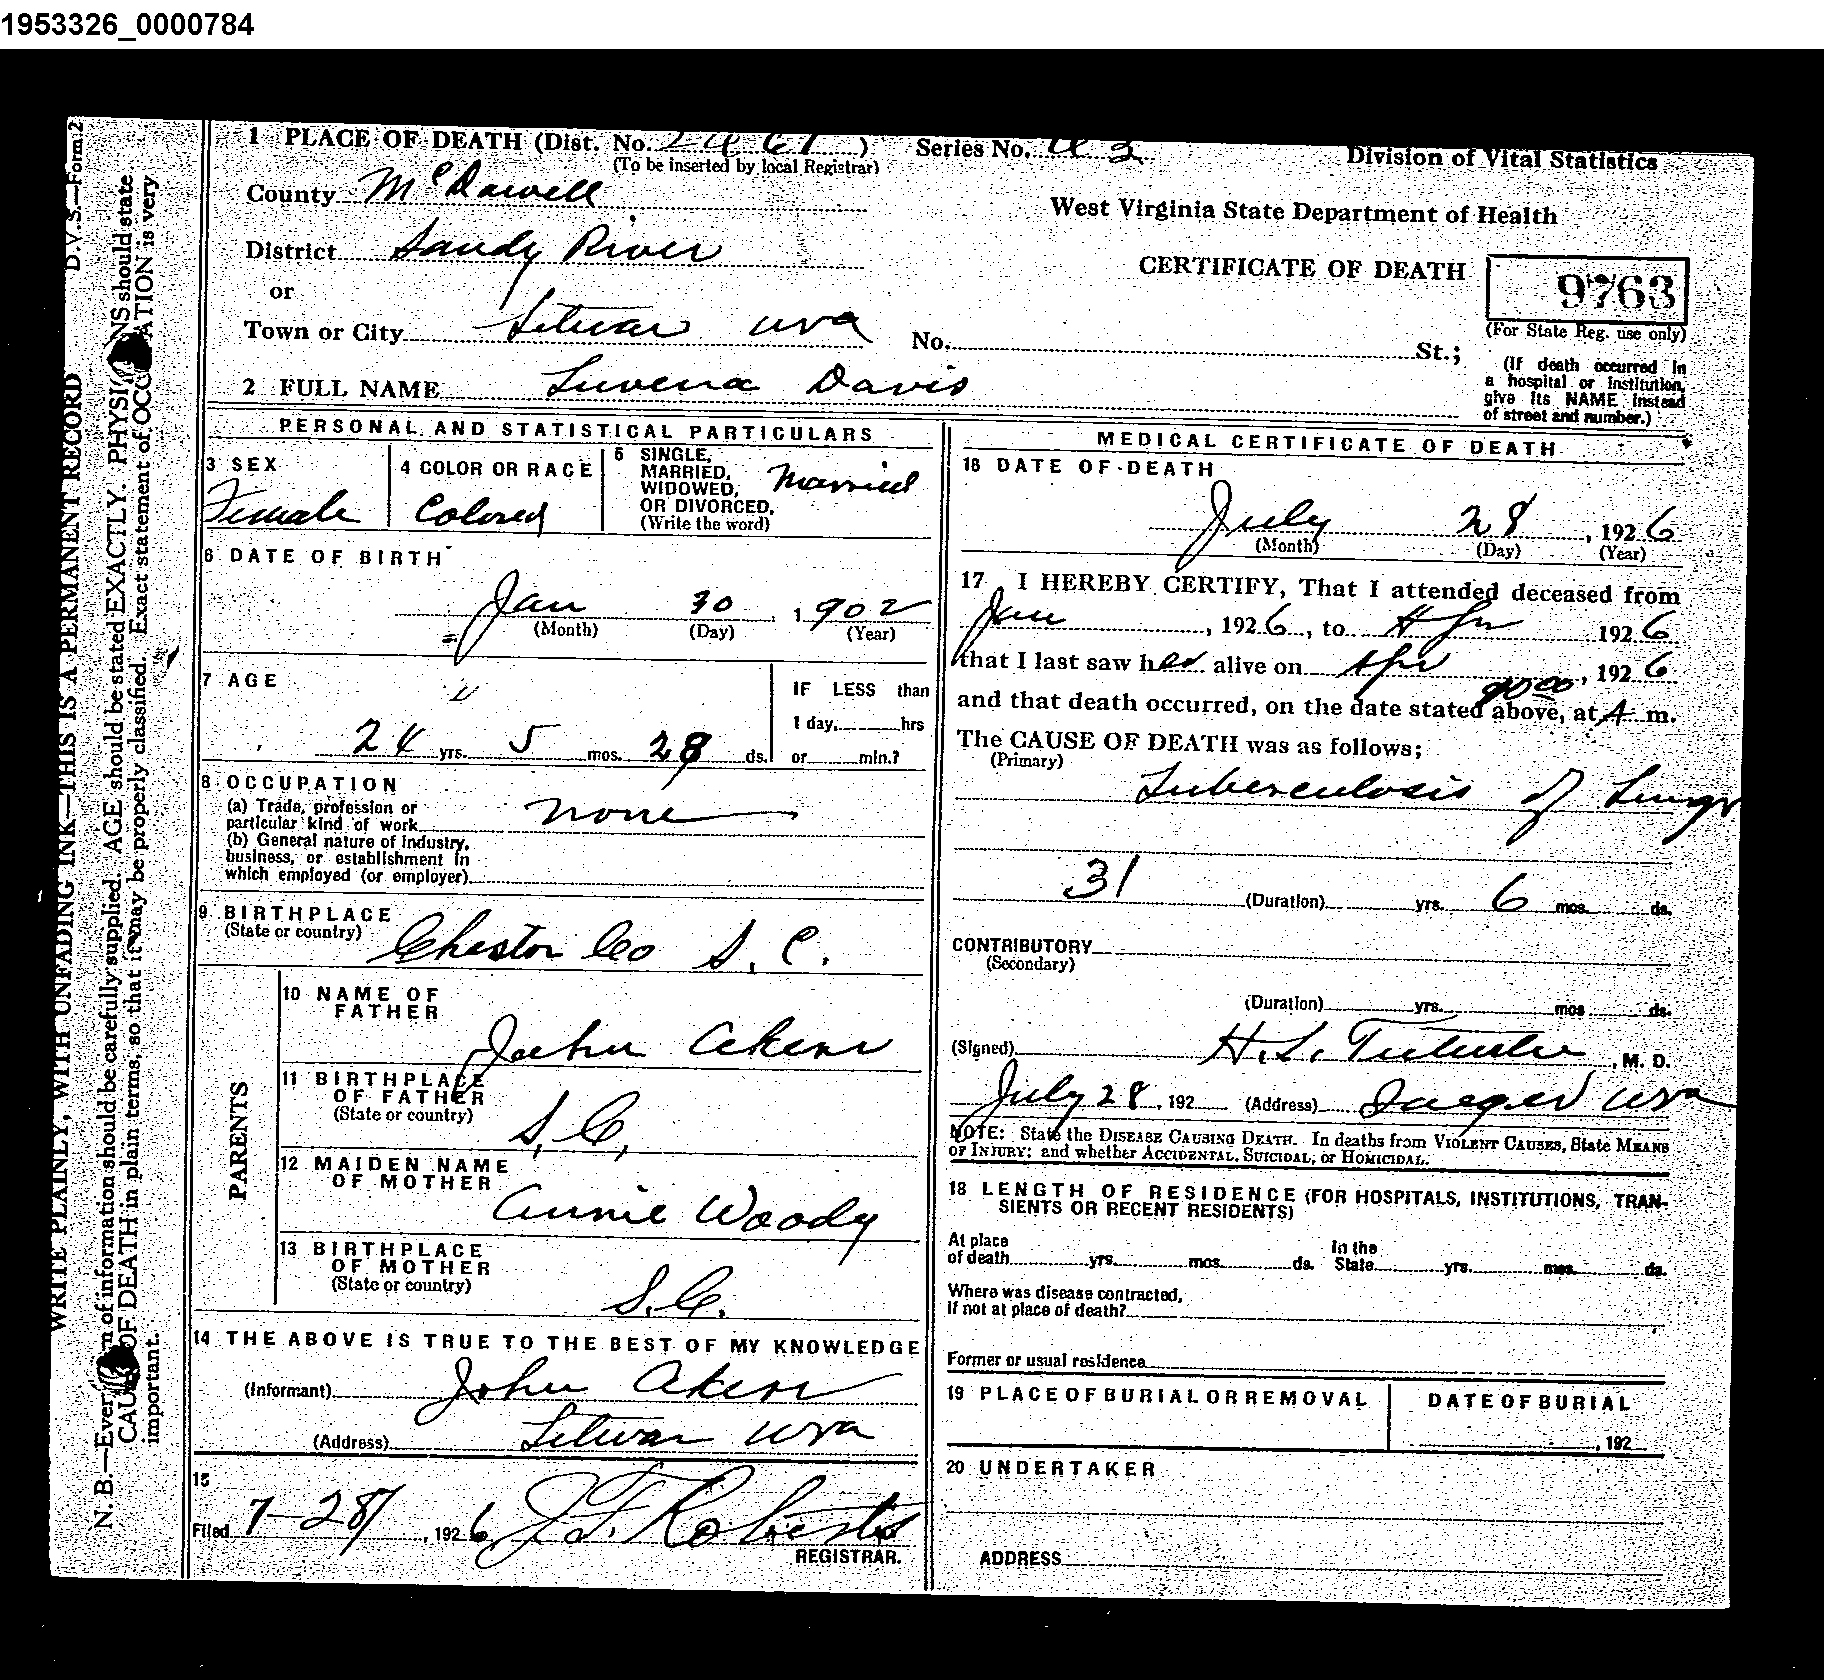 1953326_0000784
1 PLACE OF DEATH (Dist. No. ) Series No. Division of Vital Statistics
(To be inserted by local Registrar)
County McDowell
West Virginia State Department of Health
District Sandy River
CERTIFICATE OF DEATH
9763
or
(For State Reg. use only)
Town or City Litwar wva No. St.;
(If death occurred in
a hospital or institution,
give its NAME instead
of street and number.)
2 FULL NAME Luvena Davis
PERSONAL AND STATISTICAL PARTICULARS
3 SEX
Female
4 COLOR OR RACE
Colored
5 SINGLE,
MARRIED,
WIDOWED,
OR DIVORCED.
(Write the word)
Married
6 DATE OF BIRTH
Jan 30, 1902
(Month) (Day) (Year)
7 AGE
24 yrs. 5 mos. 28 ds.
IF LESS than
1 day, hrs
or min.?
8 OCCUPATION
(a) Trade, profession or
particular kind of work none
(b) General nature of industry,
business, or establishment in
which employed (or employer)
9 BIRTHPLACE
(State or country) Chester Co S. C.
PARENTS
10 NAME OF
FATHER
John Akens
11 BIRTHPLACE
OF FATHER
(State or country)
S. C.
12 MAIDEN NAME
OF MOTHER
Annie Woody
13 BIRTHPLACE
OF MOTHER
(State or country)
S. C.
14 THE ABOVE IS TRUE TO THE BEST OF MY KNOWLEDGE
(Informant) John Akens
(Address) Litwar wva
15
Filed 7-28, 1926 Roberts
REGISTRAR.
MEDICAL CERTIFICATE OF DEATH
16 DATE OF DEATH
July 28, 1926
(Month) (Day) (Year)
17 I HEREBY CERTIFY, That I attended deceased from
Jan, 1926, to 1926
that I last saw her alive on Apr, 1926
and that death occurred, on the date stated above, at A m.
The CAUSE OF DEATH was as follows;
(Primary)
Tuberculosis of Lungs
31
(Duration) yrs. 6 mos. ds.
CONTRIBUTORY
(Secondary)
(Duration) yrs. mos ds.
(Signed) H. S. , M. D.
July 28, 192 (Address) Iaeger wva
NOTE: State the DISEASE CAUSING DEATH. In deaths from VIOLENT CAUSES, State MEANS
OF INJURY; and whether ACCIDENTAL, SUICIDAL, or HOMICIDAL.
18 LENGTH OF RESIDENCE (FOR HOSPITALS, INSTITUTIONS, TRAN-
SIENTS OR RECENT RESIDENTS)
At place
of death yrs. mos. ds.
In the
State yrs. mos. ds.
Where was disease contracted,
if not at place of death?
Former or usual residence
19 PLACE OF BURIAL OR REMOVAL
DATE OF BURIAL
, 192
20 UNDERTAKER
ADDRESS
D. V. S.—Form 2
WRITE PLAINLY, WITH UNFADING INK—THIS IS A PERMANENT RECORD
N. B.—Every of information should be carefully supplied. AGE should be stated EXACTLY. PHYSI NS should state
CAU OF DEATH in plain terms, so that it may be properly classified. Exact statement of OCC ATION is very
important.